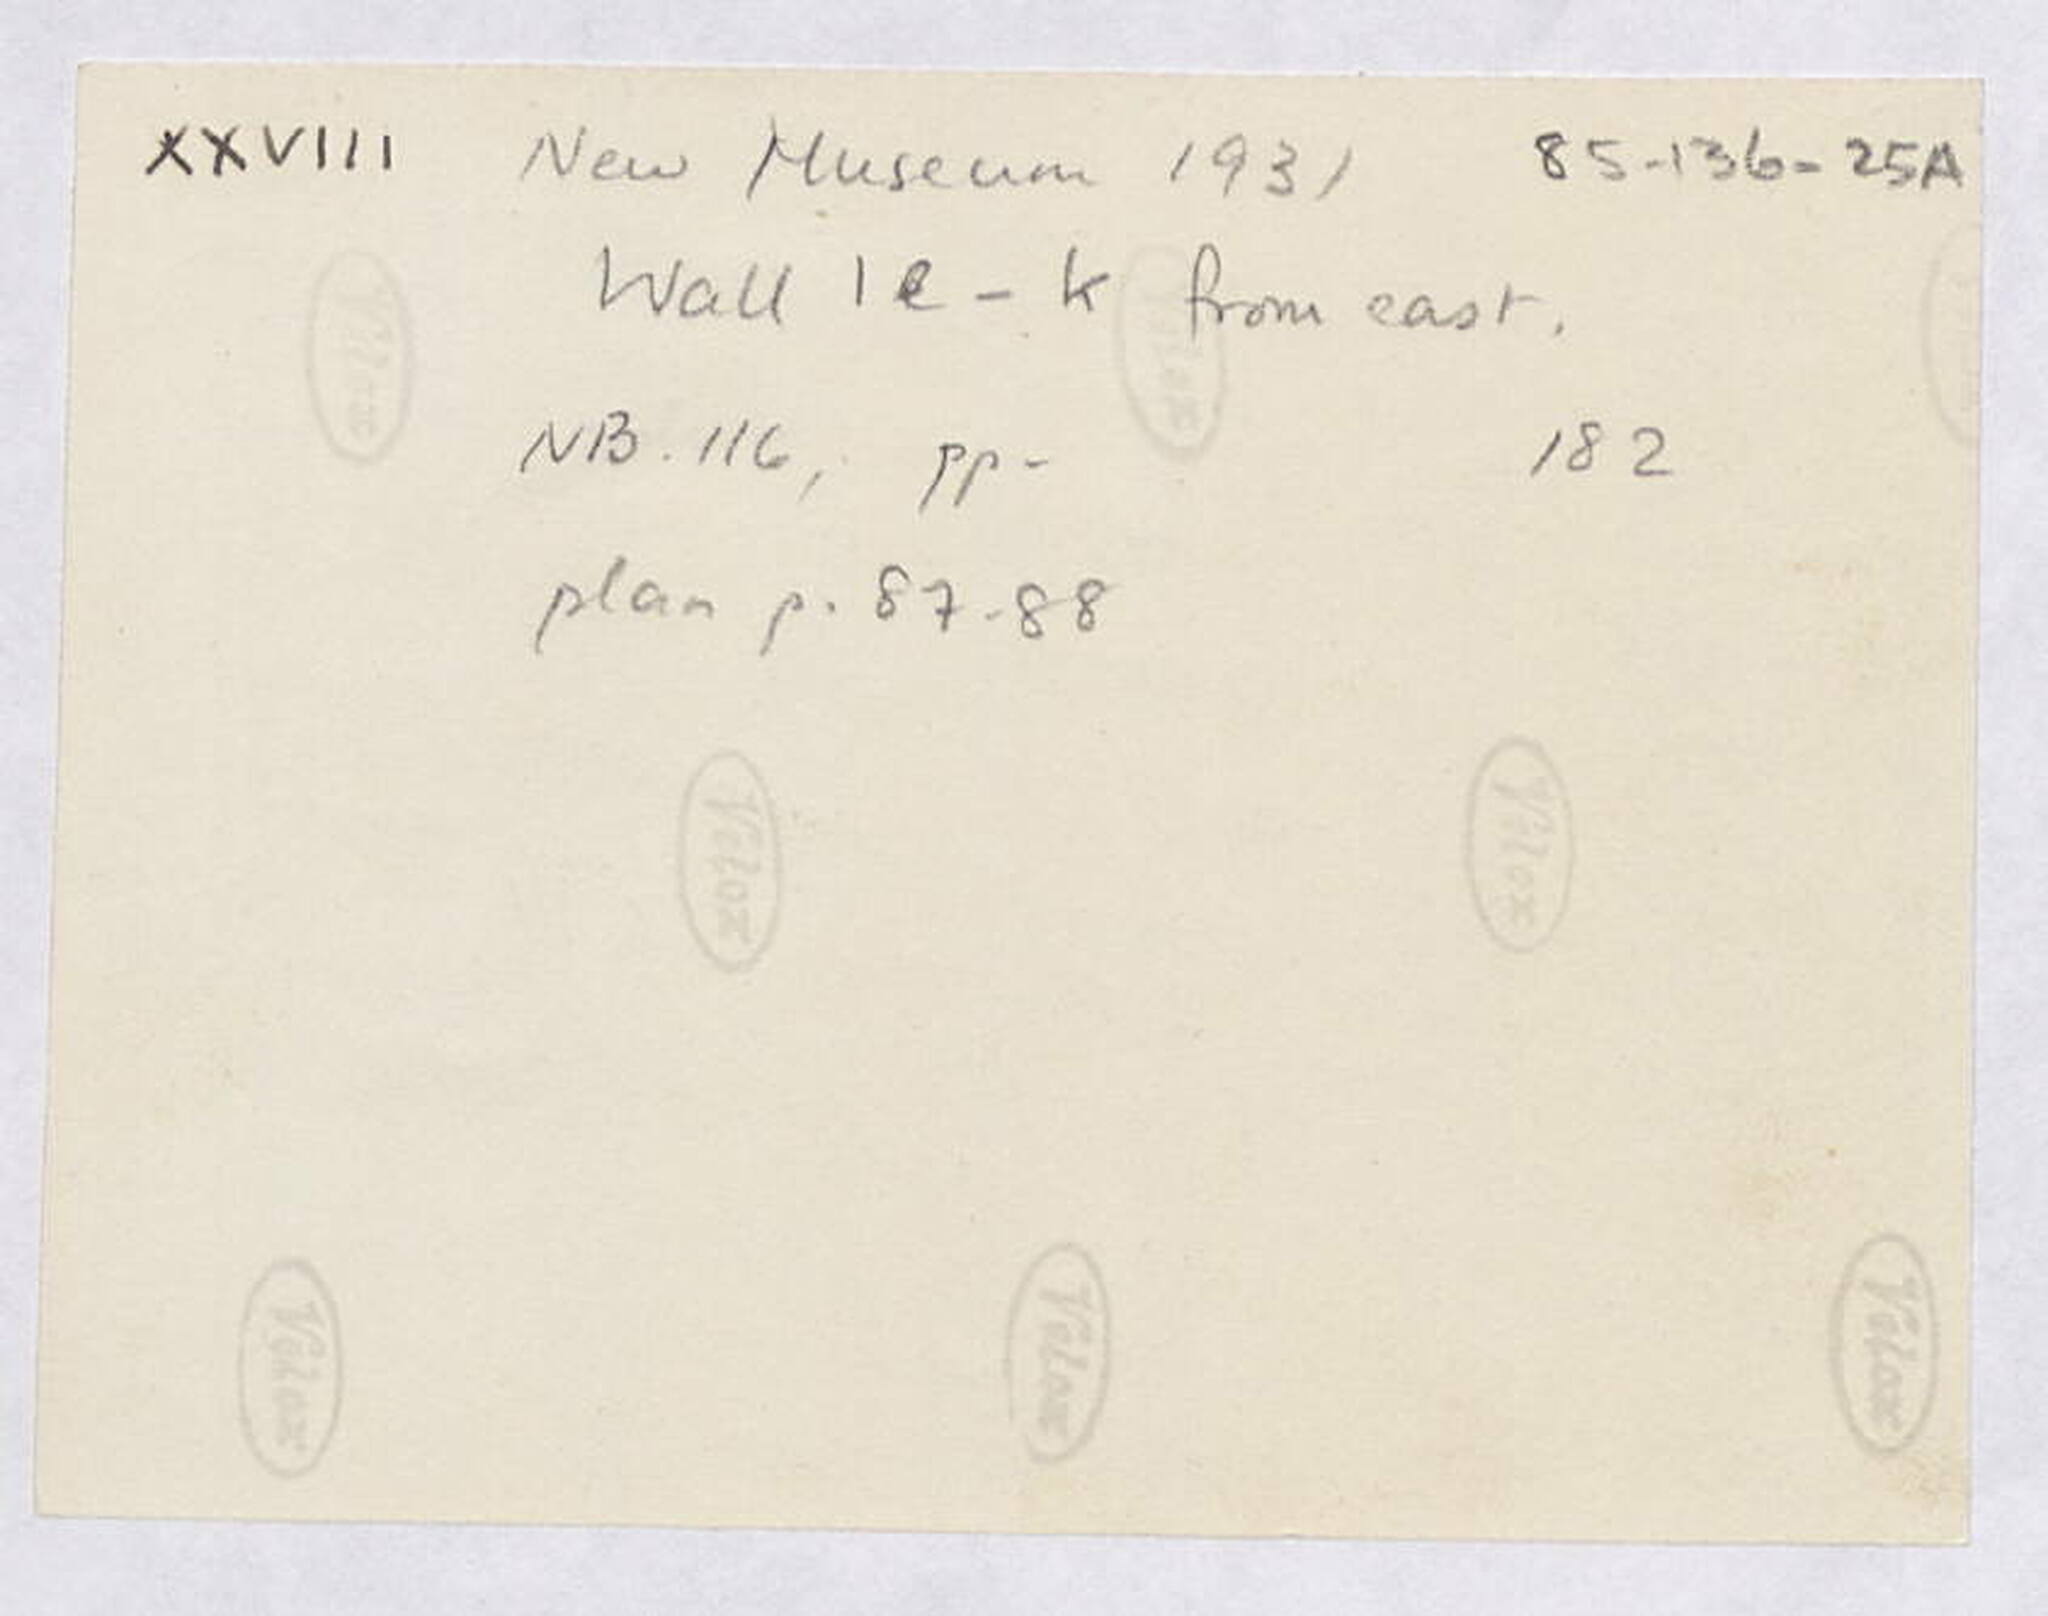 XXVIII New Museum 1931 85-136-25A
Wall 1e-k from east.
NB. 116, pp- 182
plan p. 87-88
Velox
Velox
Velox
Velox
Velox
Velox
Velox